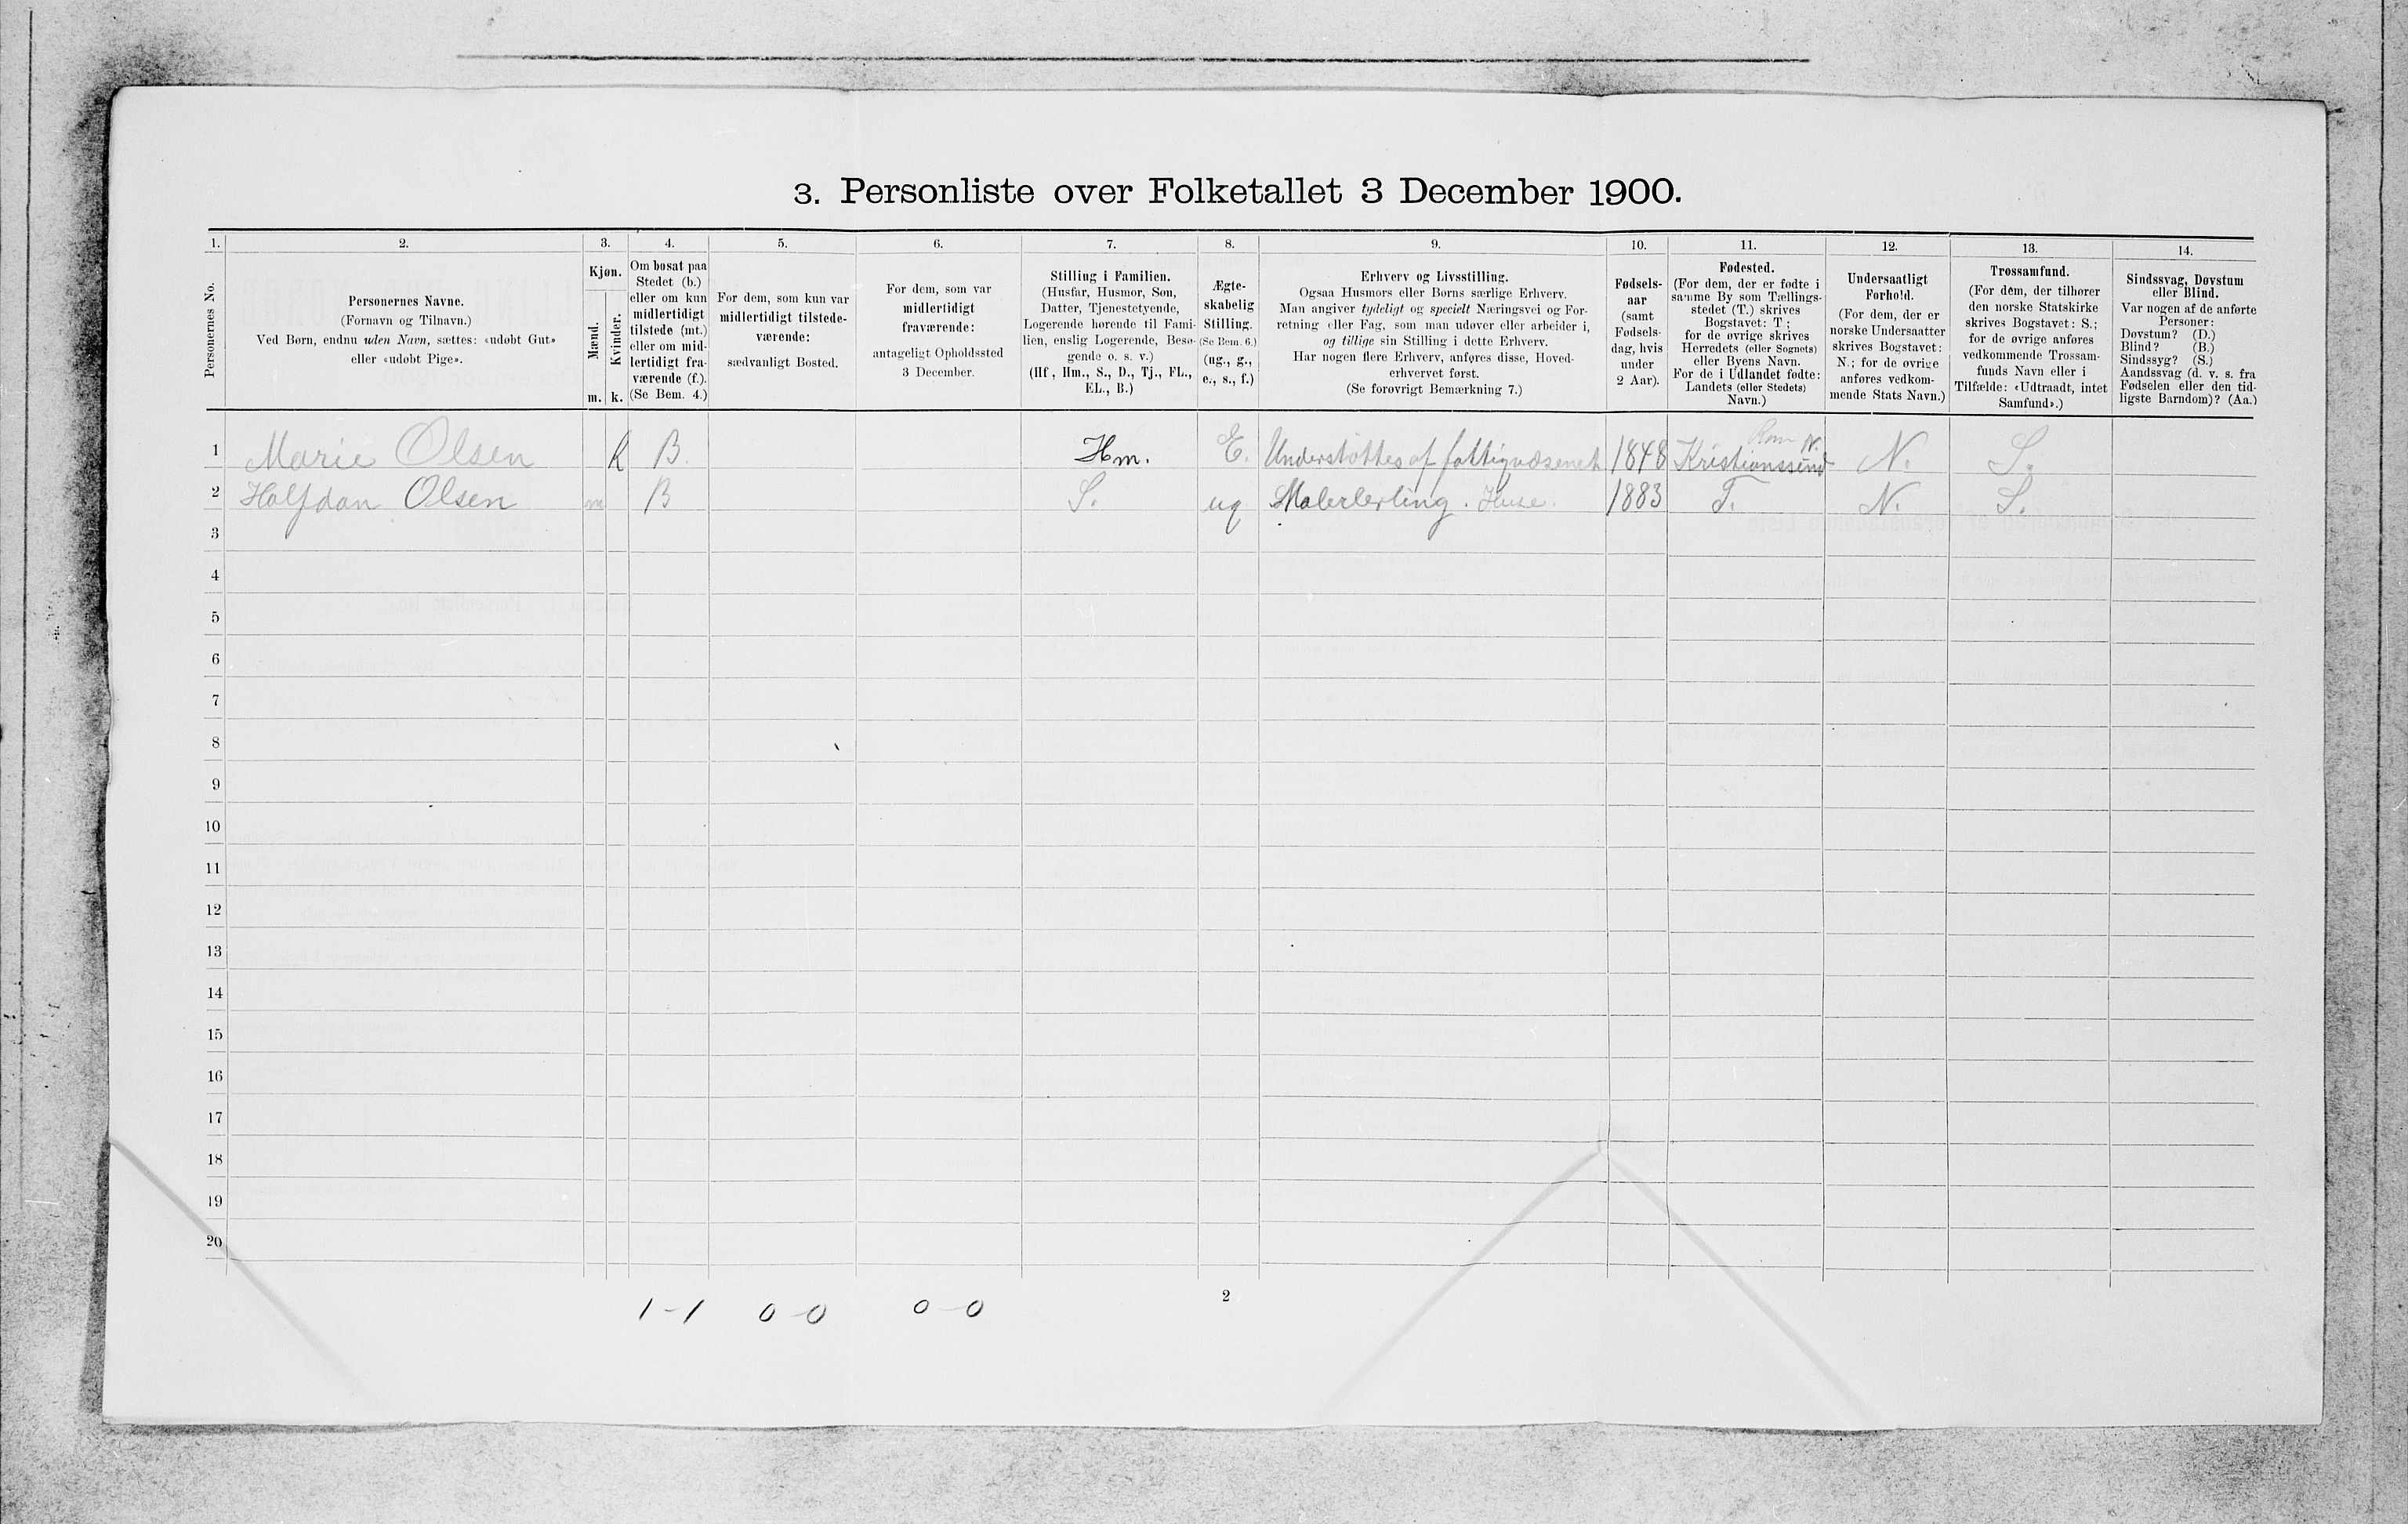 3. Personliste over Folketallet 3 December 1900.
1. 2. 3. 4. 5. 6. 7. 8. 9. 10. 11. 12. 13. 14.
Personernes No.
Personernes Navne.
(Fornavn og Tilnavn.)
Ved Børn, endnu uden Navn, sættes: «udøbt Gut»
eller «udøbt Pige».
Kjøn.
Mænd.
m.
Kvinder.
k.
Om bosat paa
Stedet (b.)
eller om kun
midlertidigt
tilstede (mt.)
eller om mid-
lertidigt fra-
værende (f.).
(Se Bem. 4.)
For dem, som kun var
midlertidigt tilstede-
værende:
sædvanligt Bosted.
For dem, som var
midlertidigt
fraværende:
antageligt Opholdssted
3 December.
Stilling i Familien.
(Husfar, Husmor, Søn,
Datter, Tjenestetyende,
Logerende hørende til Fami-
lien, enslig Logerende, Besø-
gende o. s. v.)
(Hf., Hm., S., D., Tj., FL.,
EL., B.)
Ægte-
skabelig
Stilling.
(Se Bem. 6.)
(ug., g.,
e., s., f.)
Erhverv og Livsstilling.
Ogsaa Husmors eller Børns særlige Erhverv.
Man angiver tydeligt og specielt Næringsvei og For-
retning eller Fag, som man udøver eller arbeider i,
og tillige sin Stilling i dette Erhverv.
Har nogen flere Erhverv, anføres disse, Hoved-
erhvervet først.
(Se forøvrigt Bemærkning 7.)
Fødsels-
aar
(samt
Fødsels-
dag, hvis
under
2 Aar).
Fødested.
(For dem, der er fødte i
samme By som Tællings-
stedet (T.) skrives
Bogstavet: T;
for de øvrige skrives
Herredets (eller Sognets)
eller Byens Navn.
For de i Udlandet fødte:
Landets (eller Stedets)
Navn.)
Undersaatligt
Forhold.
(For dem, der er
norske Undersaatter
skrives Bogstavet:
N.; for de øvrige
anføres vedkom-
mende Stats Navn.)
Trossamfund.
(For dem, der tilhører
den norske Statskirke
skrives Bogstavet: S.;
for de øvrige anføres
vedkommende Trossam-
funds Navn eller i
Tilfælde: «Udtraadt, intet
Samfund».)
Sindssvag, Døvstum
eller Blind.
Var nogen af de anførte
Personer:
Døvstum? (D.)
Blind? (B.)
Sindssyg? (S.)
Aandssvag (d. v. s. fra
Fødselen eller den tid-
ligste Barndom)? (Aa.)
1 Marie Olsen K B. Hm. E. Understöttes af fattigvæsenet 1848 Kristianssund N. N. S.
2 Halfdan Olsen m B S. ug Malerlerling. Huse. 1883 T. N. S.
3
4
5
6
7
8
9
10
11
12
13
14
15
16
17
18
19
20
1-1 0-0 0-0 2